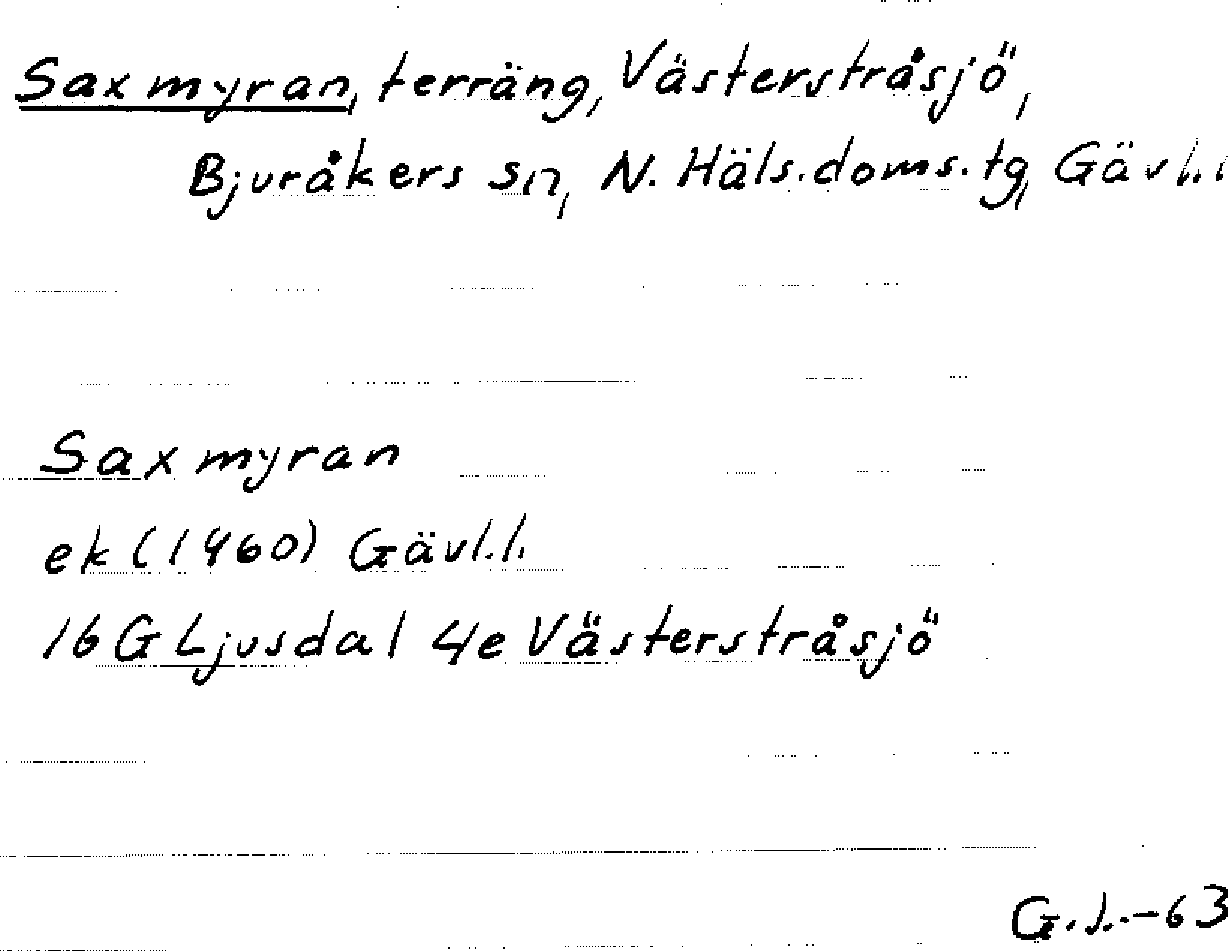 Saxmyran, terräng, Västerstråsjö,
Bjuråkers sn, N. Häls. doms. tg, Gävl.l
Saxmyran
ek (1960) Gävl.l.
16 G Ljusdal 4e Västerstråsjö
G.L.-63